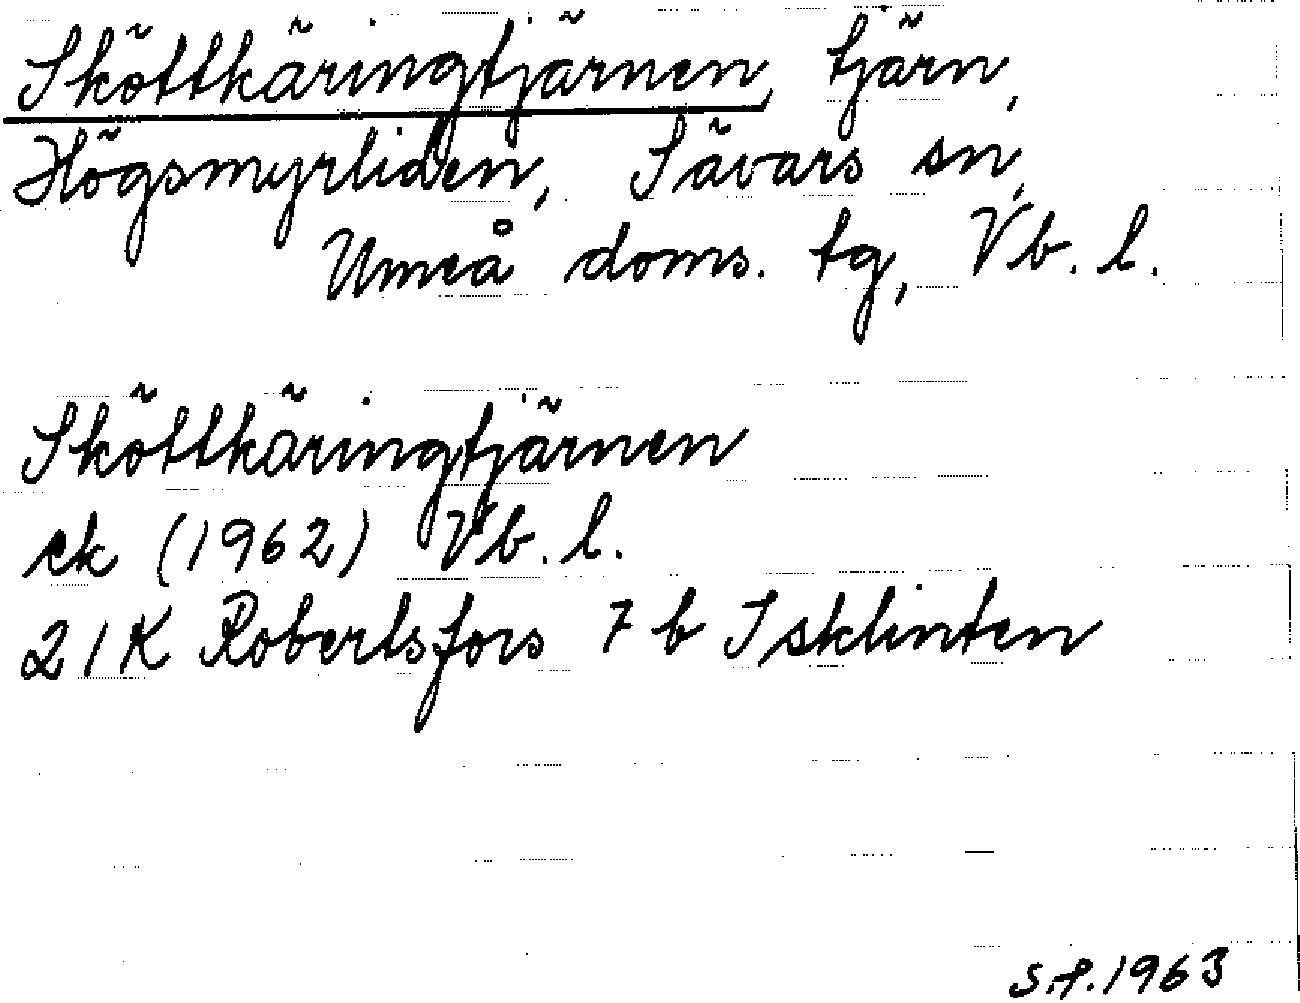 Sköttkäringtjärnen, tjärn,
Högsmyrliden, Sävars sn,
Umeå doms. tg, Vb. l.
Sköttkäringtjärnen
ek (1962) Vb. l.
21K Robertsfors 7 b Isklinten
1963